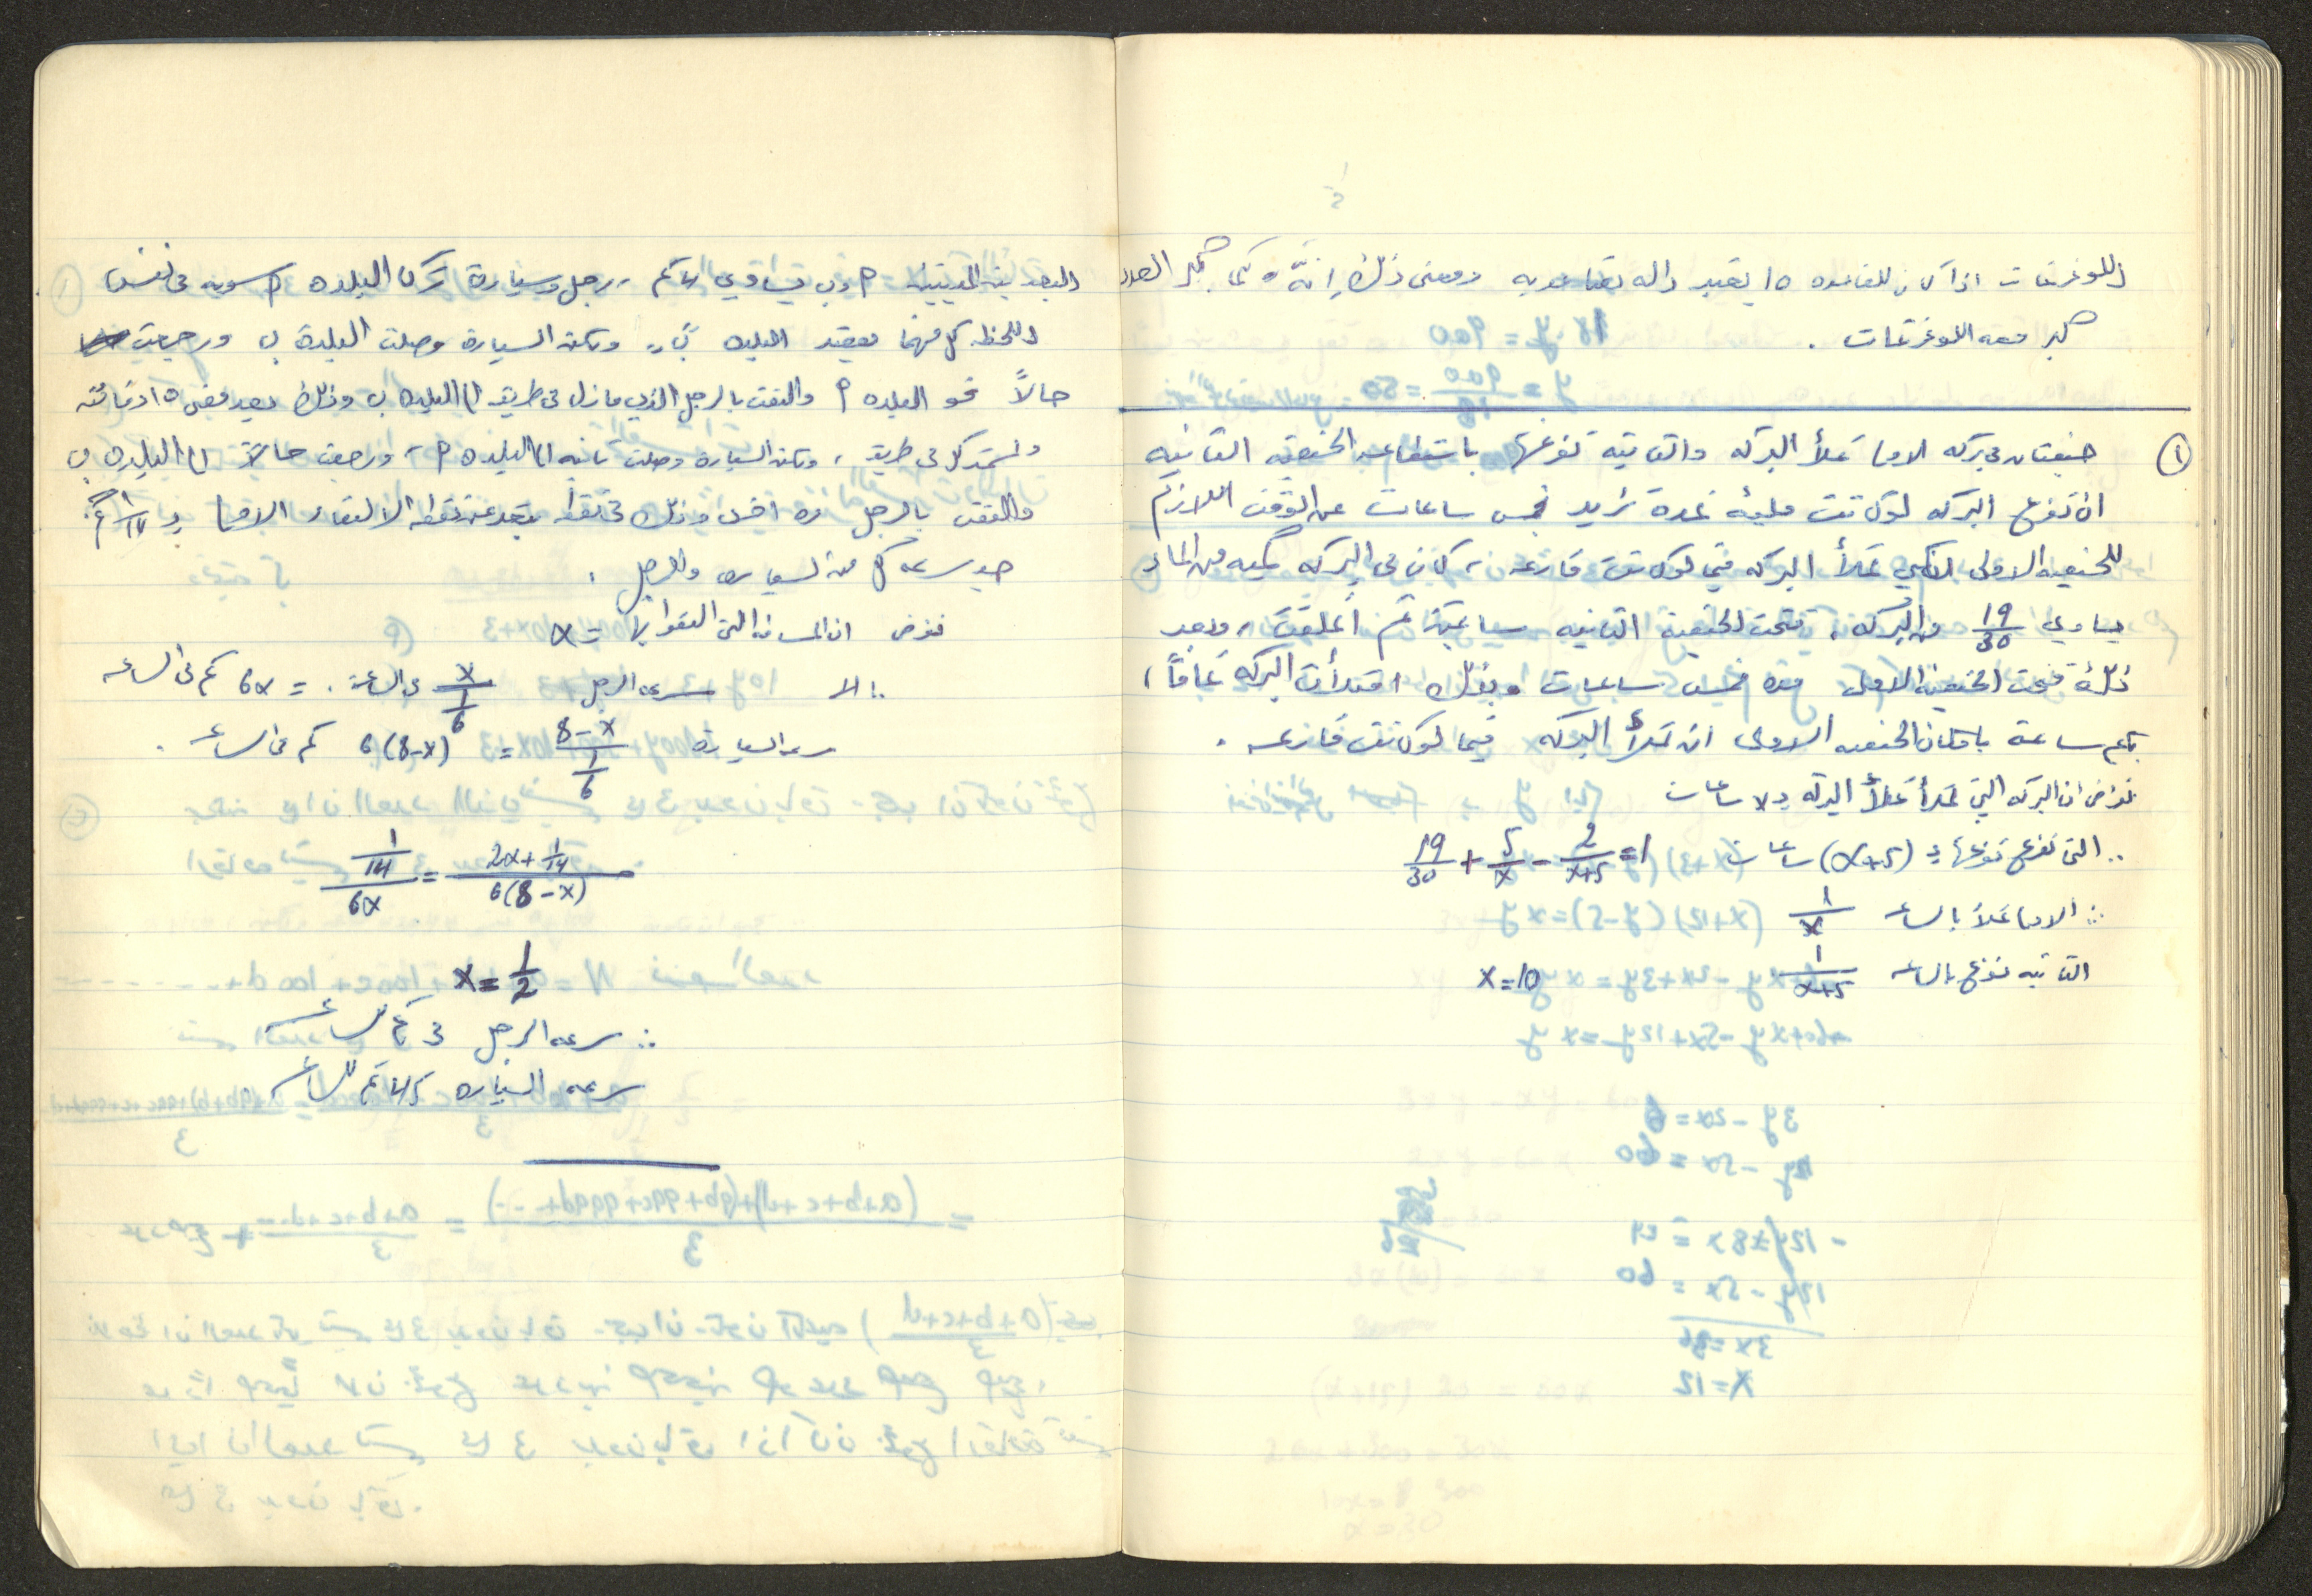 اللوغرتمات اذا كان للقاعده ١٥ يعتبر داله تصاعديه ومعنى ذلك إنّه كما كبر العدد
كبر معه اللوغرتمات .
① حنفيتان في بركه الاولى تملأ البركه والثانيه تفرغها باستطاعه الحنفيه الثانيه
ان تفرغ البركه لو كانت مليئه بمدة تزيد خمس ساعات عن الوقت اللازم
للحنفيه الاولى لكي تملأ البركه فيما لو كانت فارغه ، كان في البركه كميه من الماء
يساوي 19/30 من البركه ، فتحت الحنفيه الثانيه ساعتين ثم أغلقت ، وبعد
ذلك فتحت الحنفيه الاولى مده خمس ساعات وبذلك امتلأت البركه تماماً ،
بكم ساعة بامكان الحنفيه الاولى ان تملأ البركه فيما لو كانت فارغه .
نفرض ان البركه التي تملأ تملأ البركه بـ x ساعات
∴ التي تفرغ تفرغها بـ (x+5) ساعات 19/30 + 5/x - 2/x+5 = 1
∴ الاولى تملأ بالساعه 1/x
الثانيه تفرغ بالساعه 1/x+5 x=10
البعد بين المدينتين م و ب يساوي ٨ كم ، رجل وسيارة تركا البلده م سويه في نفس
اللحظه كل منهما يقصد البلده ب ، ولكن السيارة وصلت البلدة ب ورجعت
حالاً نحو البلده م والتقت بالرجل الذي ما زال في طريقه الى البلده ب وذلك بعد مضي ١٠ دقائق
واستمر كل في طريقه ، ولكن السيارة وصلت ثانيه الى البلده م ، ورجعت حالاً الى البلده ب
والتقت بالرجل مره اخرى وذلك في نقطه تبعد عن نقطه الالتقاء الاولى بـ ١/١٤ كم
جد سرعه كل من السياره والرجل .
نفرض ان المسافه التي التقوا بها = x
سرعه الرجل x / 1/6 في الساعة . = 6x كم في الساعه
سرعه السيارة 8-x / 1/6 = 6(8-x) كم في الساعه .
1/14 / 6x = 2x+1/14 / 6(8-x)
x = 1/2
∴ سرعه الرجل ٣ كم للساعه
سرعه السياره ٤٥ كم للساعه